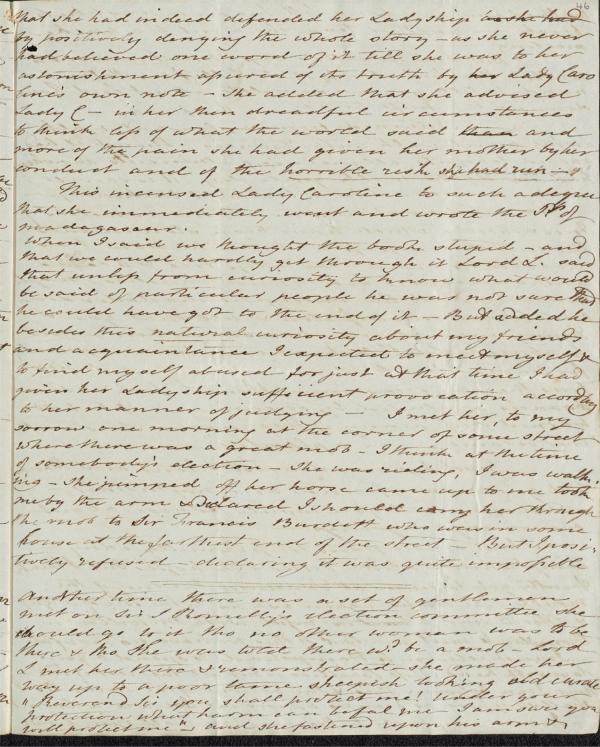 46
that she had indeed defended her Ladyship as she had
by positively denying the whole story – as she never
had believed one word of it till she was to her
astonishment assured of its truth by her Lady Caro
line's own note – She added that she advised
Lady C – in her then dreadful circumstances
to think less of what the world said than and
more of the pain she had given her mother by her
conduct and of the horrible risk she had run –
This incensed Lady Caroline to such a degree
that she immediately went and wrote the Ps of
madagascar.
When I said we thought the book stupid – and
that we could hardly get through it Lord L. said
that unless from curiosity to know what would
be said of particular people he was not sure that
he could have got to the end of it – But added he
besides this natural curiosity about my friends
and acquaintance I expected to meet myself &
to find myself abused for just at that time I had
given her Ladyship sufficient provocation according
to her manner of judging – I met her, to my
sorrow one morning at the corner of some street
where there was a great mob – I think at the time
of somebody's election – She was riding, I was walk
ing – She jumped off her horse came up to me took
me by the arm & declared I should carry her through
the mob to Sir Francis Burdett who was in some
house at the farthest end of the street – But I posi
tively refused – declaring it was quite impossible
Another time there was a set of gentlemen
met on Sir S Romilly's election committee she
would go to it tho no other woman was to be
there & tho she was told there wd be a mob – Lord
L met her there & remonstrated – she made her
way up to a poor lame sheepish looking old curate
"Reverend Sir you shall protect me! under your
protection what harm can befal me – I am sure you
will protect me" – and she fastened upon his arm &